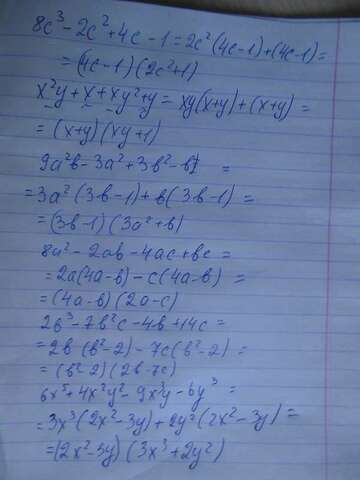 8c³ - 2c² + 4c - 1 = 2c² (4c-1) + (4c-1) =
= (4c-1) (2c²+1)
x²y + x + xy² + y = xy(x+y) + (x+y) =
= (x+y) (xy+1)
9a²b - 3a² + 3b² - b =
= 3a² (3b-1) + b (3b-1) =
= (3b-1) (3a²+b)
8a² - 2ab - 4ac + bc =
= 2a(4a-b) - c(4a-b) =
= (4a-b) (2a-c)
2b³ - 7b²c - 4b + 14c =
= 2b (b²-2) - 7c (b²-2) =
= (b²-2) (2b-7c)
6x⁵ + 4x²y² - 9x³y - 6y³ =
= 3x³ (2x²-3y) + 2y² (2x²-3y) =
= (2x²-3y) (3x³+2y²)